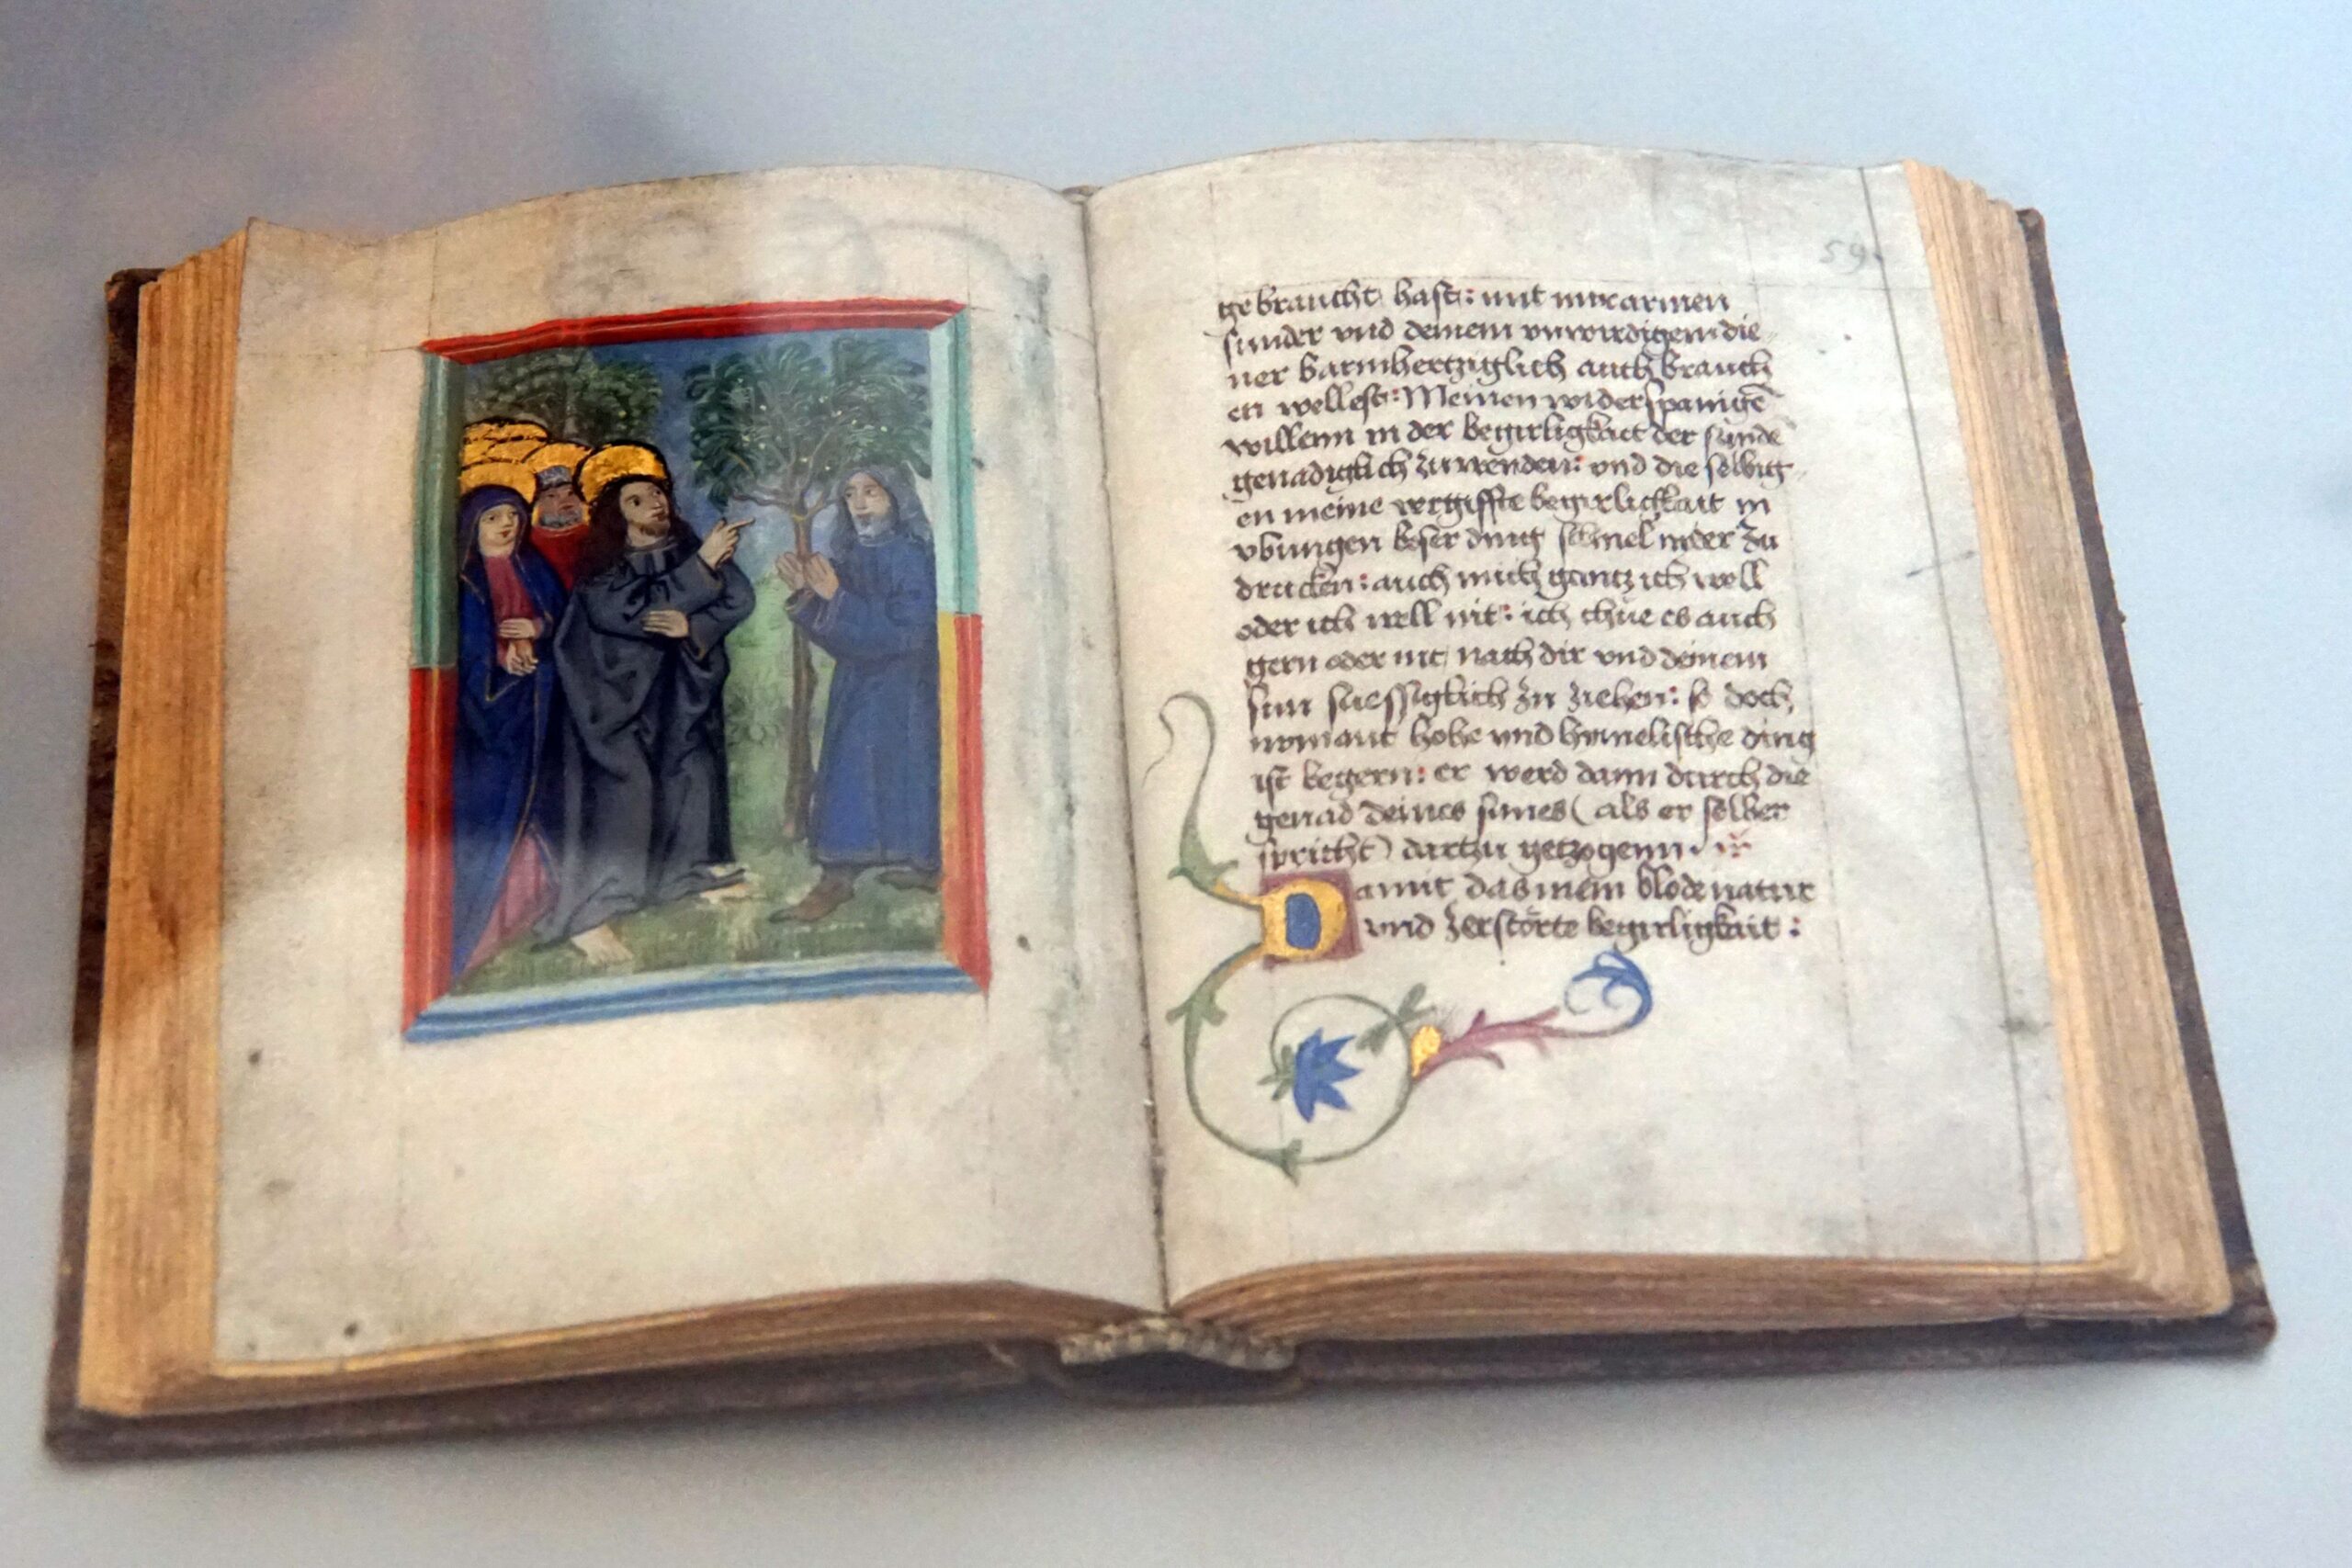 59
gebraucht hast: mit mir armen
sunder vnd deinem vnwirdigem die
ner barmhertziglich auch brauch
en wellest: Meinen widerspanigē
willenn in der begirligkait der sunde
genadiglich zu wenden: vnd die selbig
en meine vergiffte begirligkait in
vbungen böser ding schnel nider zu
drucken: auch mich gantz ich woll
oder ich well nit: ich thue es auch
gern oder nit nach dir vnd deinem
sun suessiglich zu ziehen: so doch
nymant hohe vnd hymelische ding
ist begern: er werd dann durch die
genad deines sunes (als er selber
spricht) dartzu getzogenn.
Damit das mein blode natur
vnd zerstörte begirligkait: